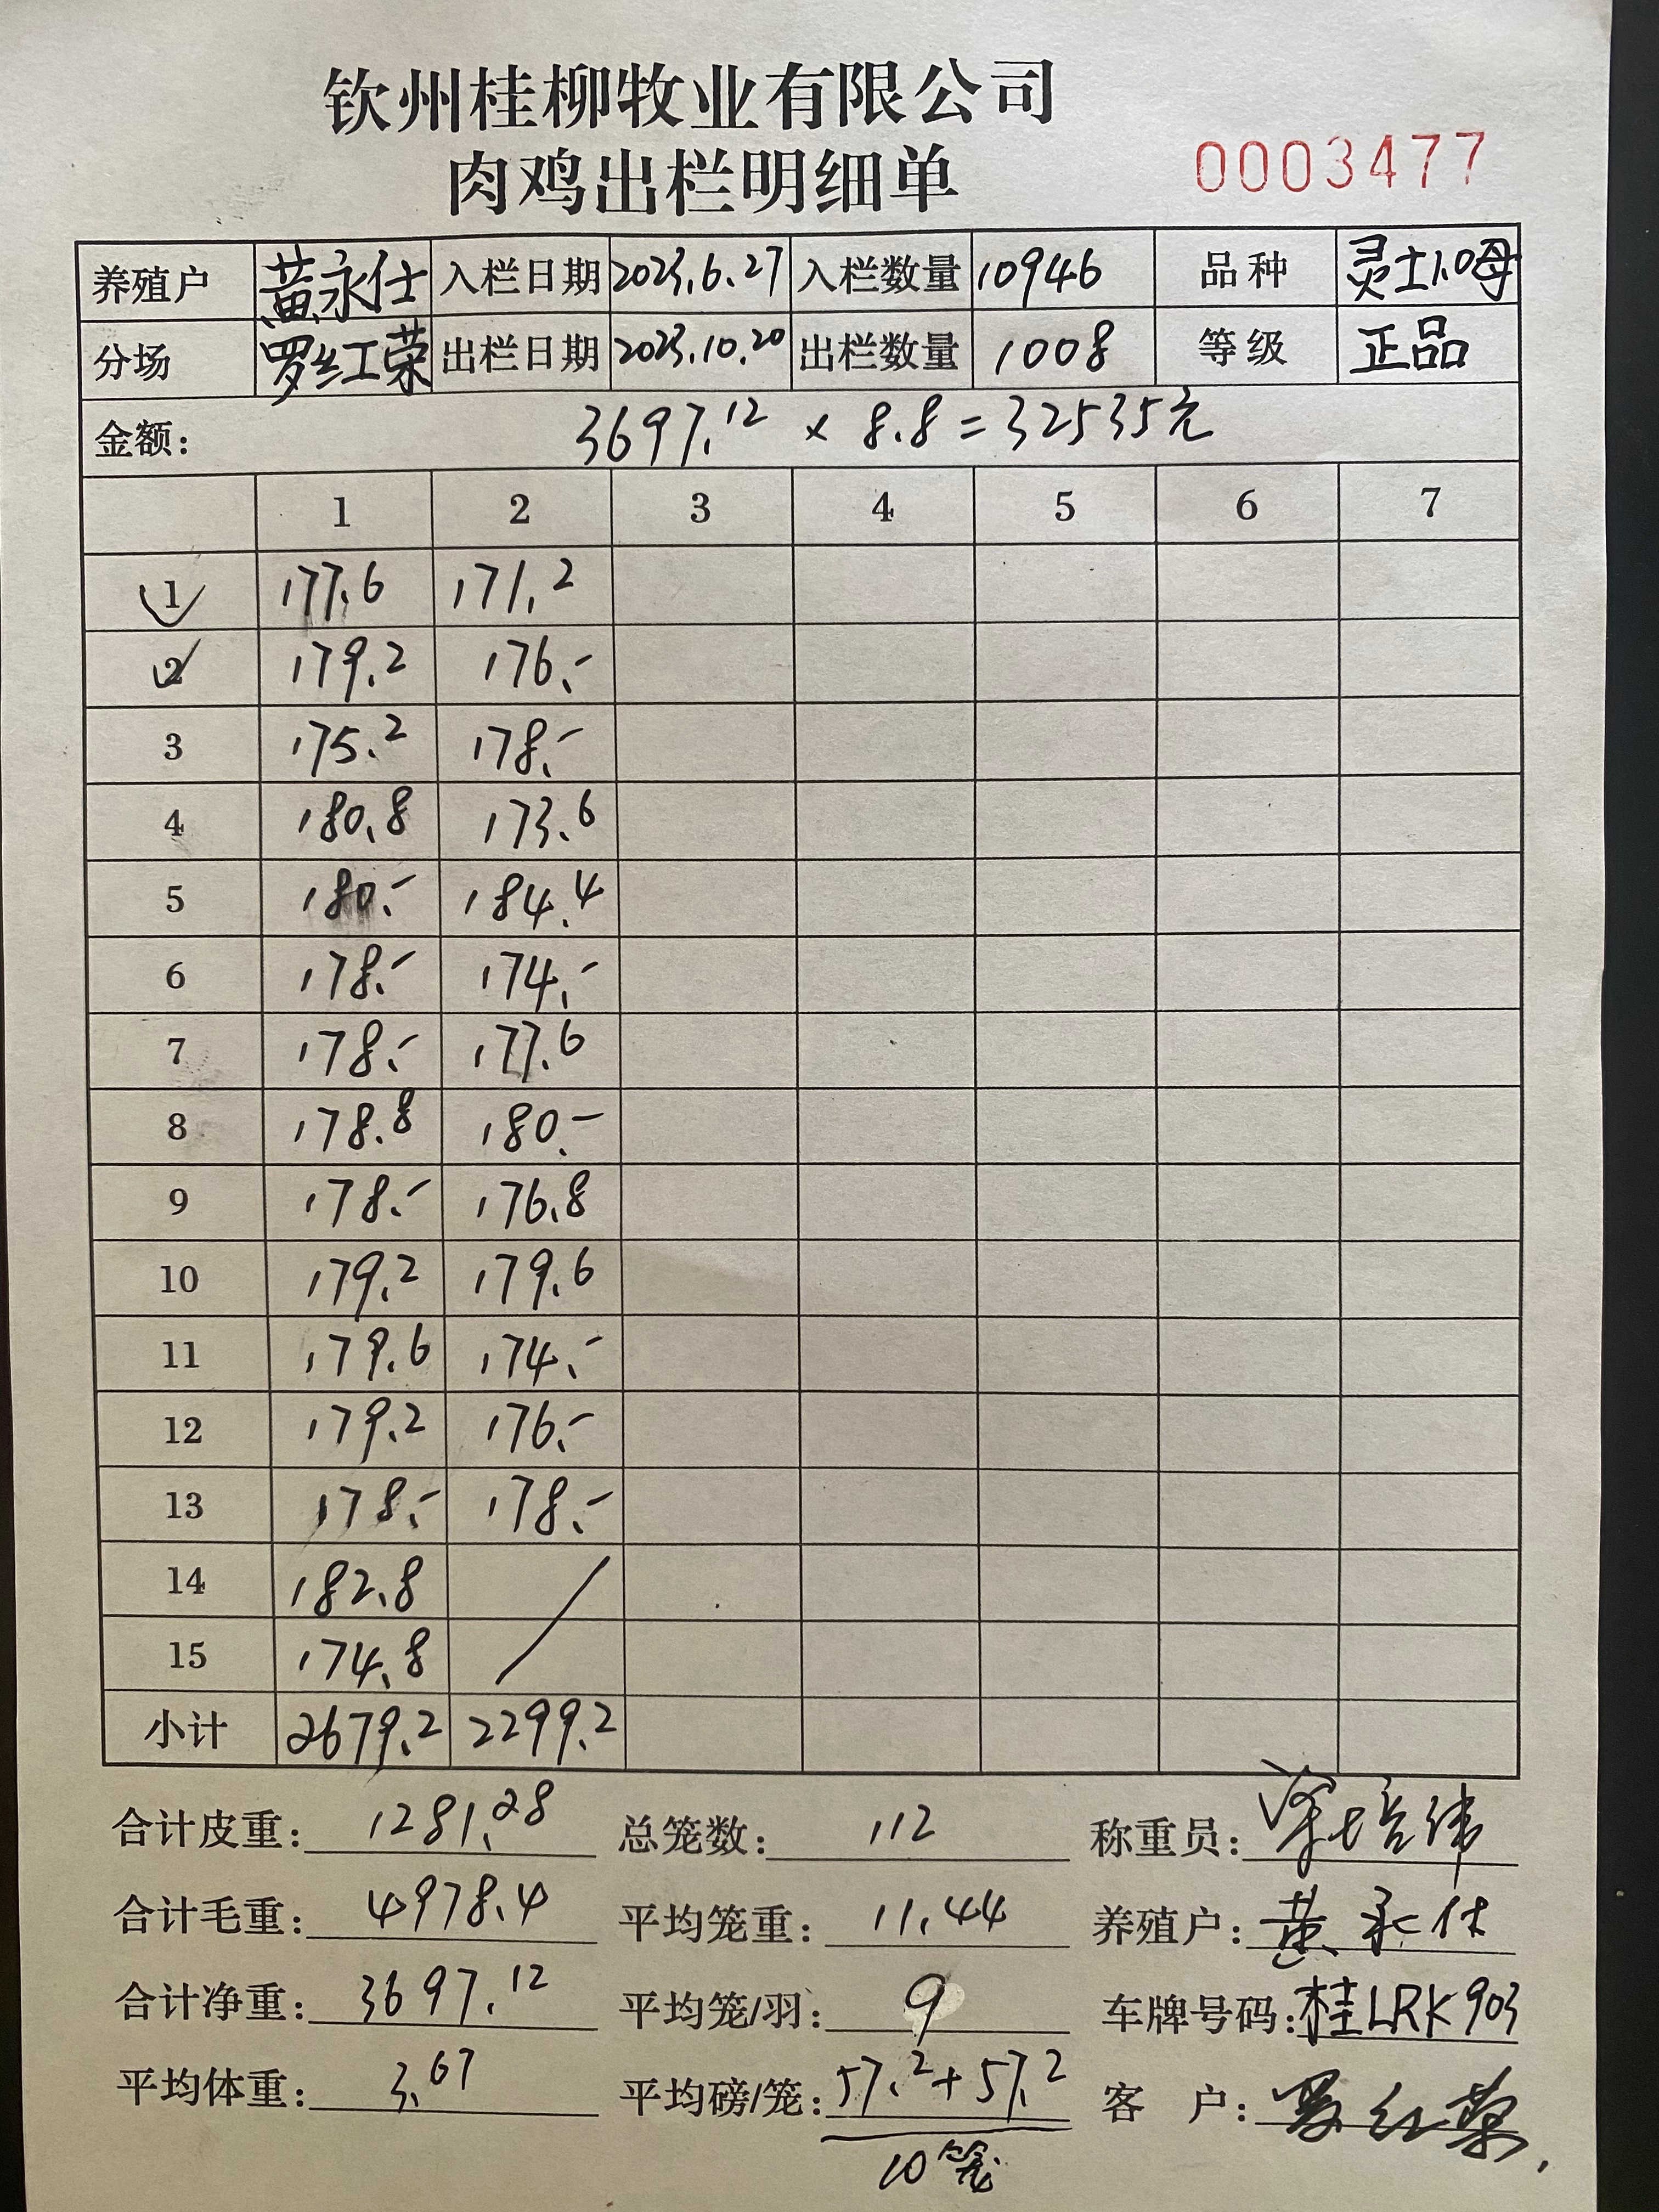 钦州桂柳牧业有限公司
肉鸡出栏明细单 0003477
养殖户 黄永仕 入栏日期 2023.6.27 入栏数量 10946 品种 灵土1.0母
分场 罗红荣 出栏日期 2023.10.20 出栏数量 1008 等级 正品
金额: 3697.12 × 8.8 = 32535元
1 2 3 4 5 6 7
1 177.6 171.2
2 179.2 176.-
3 175.2 178.-
4 180.8 173.6
5 180.- 184.4
6 178.- 174.-
7 178.- 177.6
8 178.8 180.-
9 178.- 176.8
10 179.2 179.6
11 179.6 174.-
12 179.2 176.-
13 178.- 178.-
14 182.8
15 174.8
小计 2679.2 2299.2
合计皮重: 1281.28 总笼数: 112 称重员: 培伟
合计毛重: 4978.4 平均笼重: 11.44 养殖户: 黄永仕
合计净重: 3697.12 平均笼/羽: 9 车牌号码: 桂LRK903
平均体重: 3.67 平均磅/笼: 57.2+57.2 客 户: 罗红荣
10笼